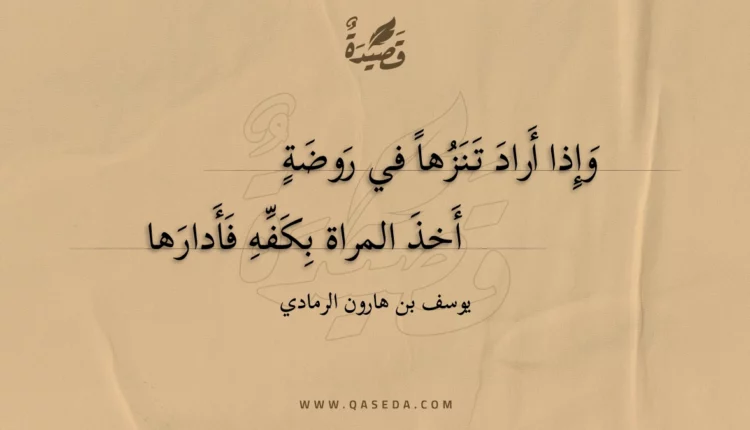 قَصِيدَةٌ
وَإِذا أَرادَ تَنَزُهاً في رَوضَةٍ
أَخذَ المراة بِكَفِّهِ فَأَدارَها
يوسف بن هارون الرمادي
WWW.QASEDA.COM